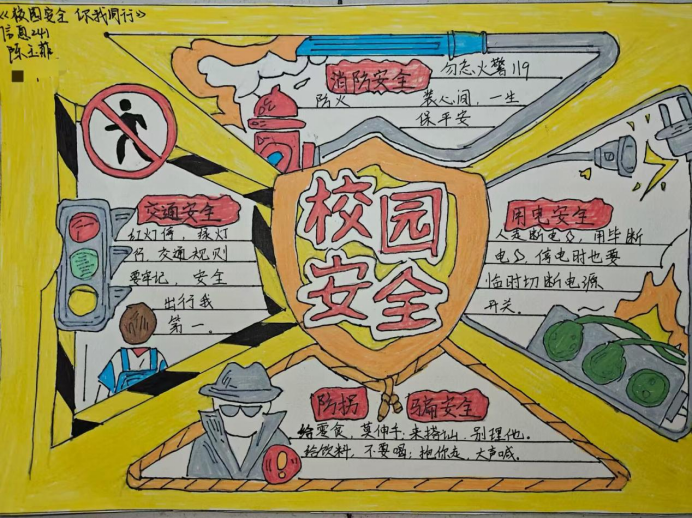 《校园安全 你我同行》
信息241
陈玉菲
消防安全
勿忘火警119
防火 装心间,一生
保平安
校园
安全
交通安全
红灯停,绿灯
行,交通规则
要牢记,安全
出行我
第一。
用电安全
人走断电,用毕断
电,停电时也要
临时切断电源
开关。
防拐 骗安全
给零食,莫伸手;来搭讪,别理他。
给饮料,不要喝;拖你走,大声喊。